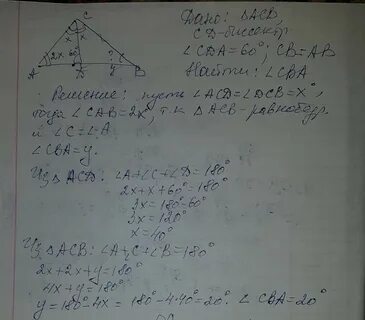 C
x x
2x 60° y ?
A D B
Дано: △ACB,
CD-биссектр.
∠CDA=60°; CB=AB
Найти: ∠CBA
Решение: пусть ∠ACD=∠DCB=x°,
тогда ∠CAB=2x°, т.к △ACB-равнобедр
и ∠C=∠A
∠CBA=y.
Из △ACD: ∠A+∠C+∠D=180°
2x+x+60°=180°
3x=180°-60°
3x=120°
x=40°
Из △ACB: ∠A+∠C+∠B=180°
2x+2x+y=180°
4x+y=180°
y=180°-4x=180°-4·40°=20°. ∠CBA=20°